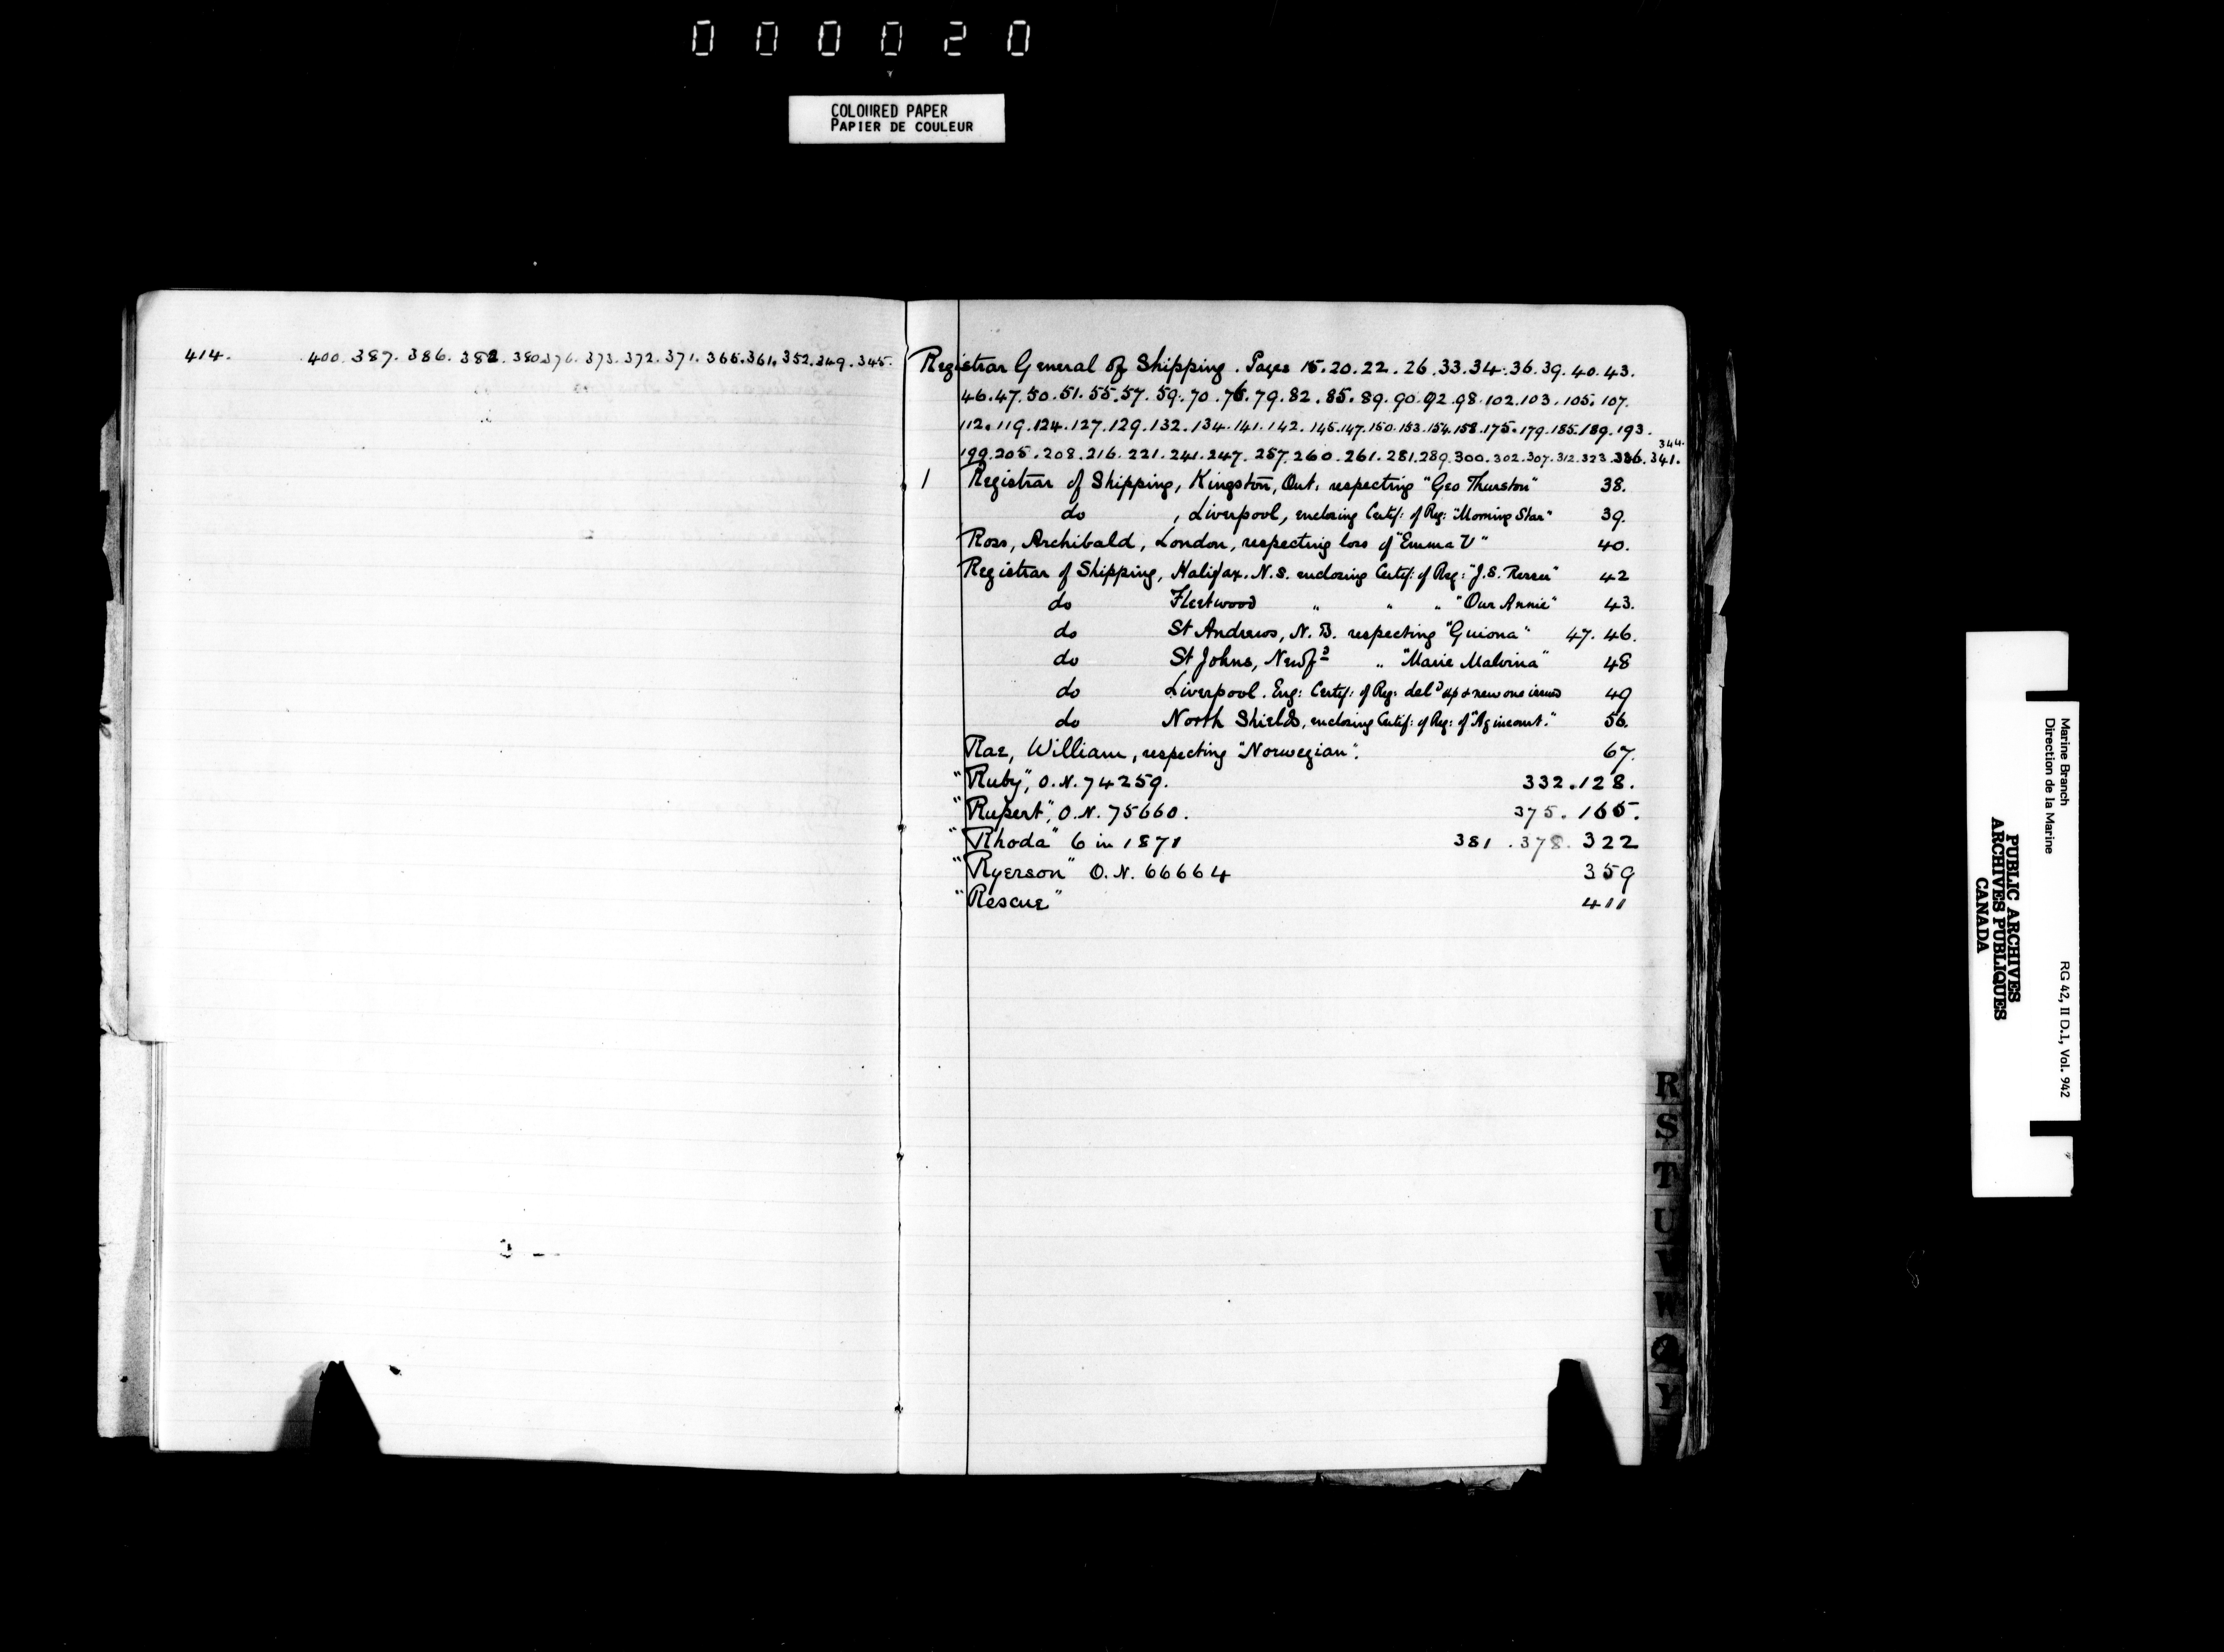 000020
COLOURED PAPER
PAPIER DE COULEUR
414. 400. 387. 386. 382. 380. 376. 373. 372. 371. 365. 361. 352. 349. 345.
Registrar General of Shipping. Pages 15. 20. 22. 26. 33. 34. 36. 39. 40. 43.
46. 47. 50. 51. 55. 57. 59. 70. 76. 79. 82. 85. 89. 90. 92. 98. 102. 103. 105. 107.
112. 119. 124. 127. 129. 132. 134. 141. 142. 145. 147. 150. 153. 154. 158. 175. 179. 185. 189. 193.
344.
199. 205. 208. 216. 221. 241. 247. 257. 260. 261. 281. 289. 300. 302. 307. 312. 323. 336. 341.
1 Registrar of Shipping, Kingston, Ont. respecting "Geo Thurston" 38.
do , Liverpool, enclosing Certif: of Reg: "Morning Star" 39.
Ross, Archibald, London, respecting loss of "Emma V" 40.
Registrar of Shipping, Halifax. N.S. enclosing Certif: of Reg: "J.S. 42
do Fleetwood " " " "Our Annie" 43.
do St Andrews, N.B. respecting "Guiona" 47. 46.
do St Johns, Newfd " "Marie Malvina" 48
do Liverpool. Eng: Certif: of Reg: deld up & new one issued 49
do North Shields, enclosing Certif: of Reg: of "Agincourt." 56.
Rae, William, respecting "Norwegian". 67.
"Ruby", O.N. 74259. 332. 128.
"Rupert", O.N. 75660. 375. 165.
"Rhoda" 6 in 1871 381. 378. 322
"Ryerson" O.N. 66664 359
"Rescue" 411
R
S
T
U
V
W
Q
Y
Marine Branch RG 42, II D.1, Vol. 942
Direction de la Marine
PUBLIC ARCHIVES
ARCHIVES PUBLIQUES
CANADA